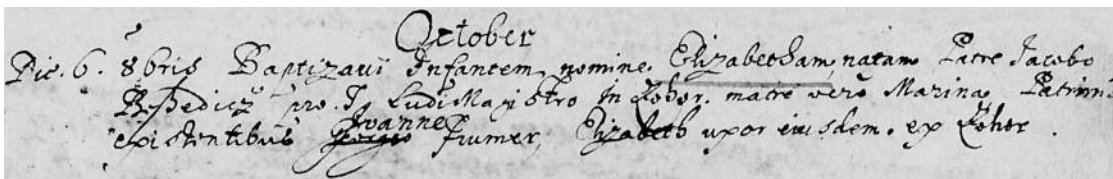 October
Die. 6. 8bris Baptizavi Infantem, nomine. Elizabetham, natam Patre Jacobo
pro. T. Ludi Magistro In Lohor. matre vero Marina, Patrinis
existentibus Joanne Fiumer, Elizabeth uxor eiusdem. ex Lohor.